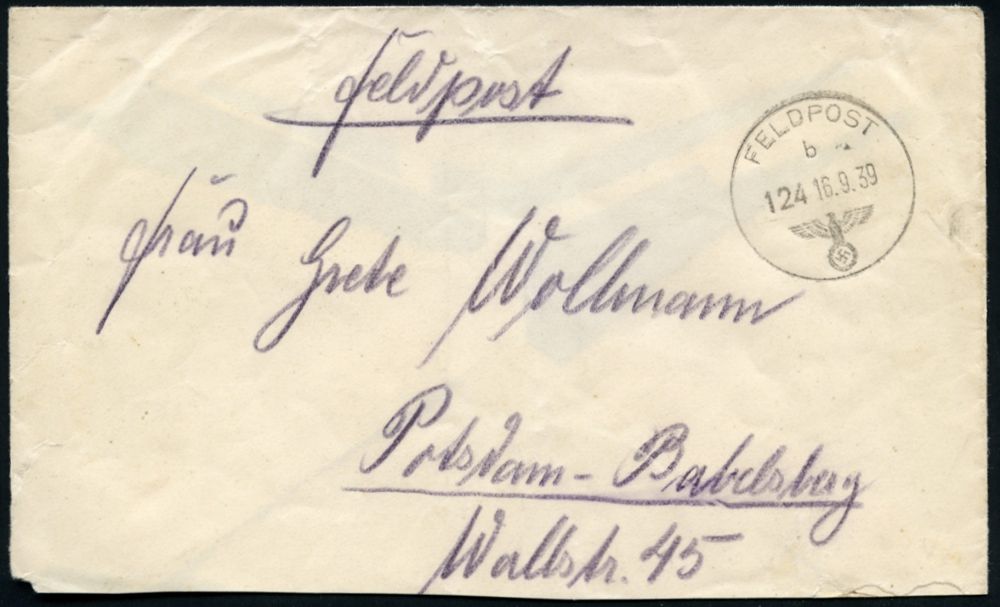 Feldpost
FELDPOST
b
124 16.9.39
Frau Grete Wollmann
Potsdam-Babelsberg
Wallstr. 45